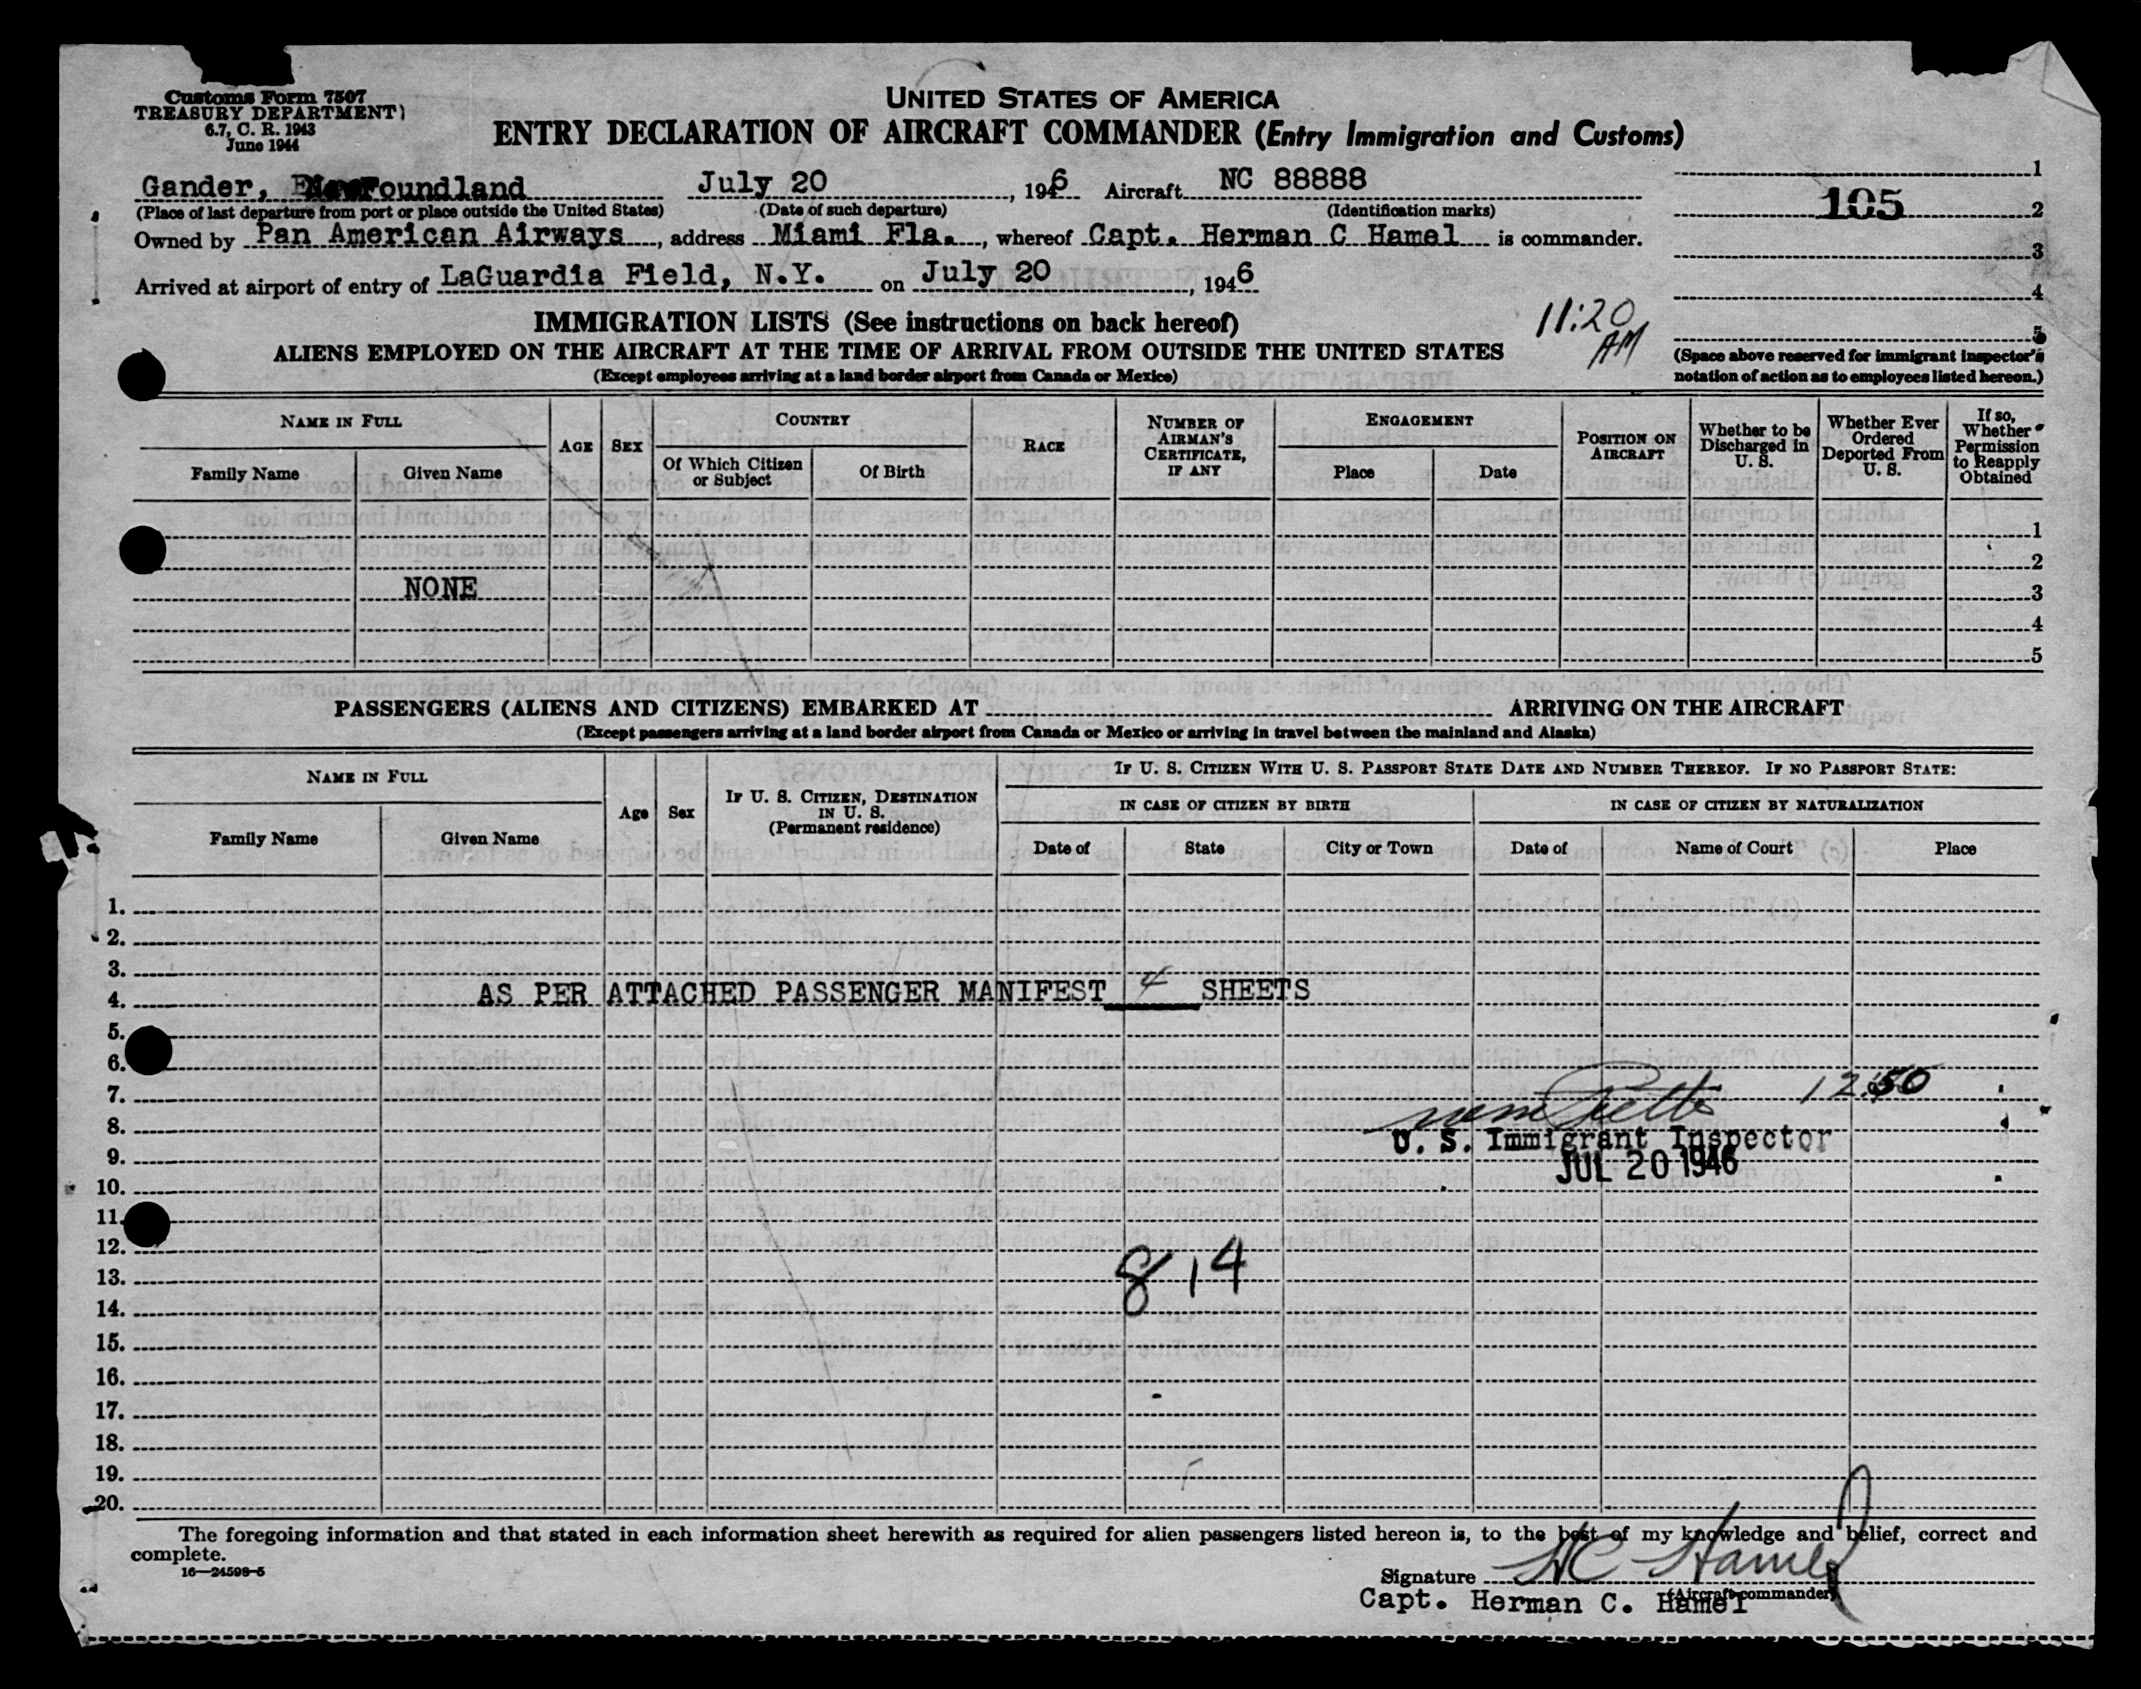 Customs Form 7507
TREASURY DEPARTMENT
6.7, C. R. 1943
June 1944
UNITED STATES OF AMERICA
ENTRY DECLARATION OF AIRCRAFT COMMANDER (Entry Immigration and Customs)
Gander, Newfoundland July 20, 1946 Aircraft NC 88888
(Place of last departure from port or place outside the United States) (Date of such departure) (Identification marks)
Owned by Pan American Airways, address Miami Fla., whereof Capt. Herman C Hamel is commander.
Arrived at airport of entry of LaGuardia Field, N.Y. on July 20, 1946
1
105 2
3
4
5
(Space above reserved for immigrant inspector's
notation of action as to employees listed hereon.)
11:20
AM
IMMIGRATION LISTS (See instructions on back hereof)
ALIENS EMPLOYED ON THE AIRCRAFT AT THE TIME OF ARRIVAL FROM OUTSIDE THE UNITED STATES
(Except employees arriving at a land border airport from Canada or Mexico)
NAME IN FULL
Family Name Given Name
AGE SEX
COUNTRY
Of Which Citizen or Subject
Of Birth
RACE
NUMBER OF AIRMAN'S CERTIFICATE, IF ANY
ENGAGEMENT
Place Date
POSITION ON AIRCRAFT
Whether to be Discharged in U. S.
Whether Ever Ordered Deported From U. S.
If so, Whether Permission to Reapply Obtained
1
2
NONE 3
4
5
PASSENGERS (ALIENS AND CITIZENS) EMBARKED AT ARRIVING ON THE AIRCRAFT
(Except passengers arriving at a land border airport from Canada or Mexico or arriving in travel between the mainland and Alaska)
NAME IN FULL
Family Name Given Name
Age Sex
IF U. S. CITIZEN, DESTINATION IN U. S. (Permanent residence)
IF U. S. CITIZEN WITH U. S. PASSPORT STATE DATE AND NUMBER THEREOF. IF NO PASSPORT STATE:
IN CASE OF CITIZEN BY BIRTH IN CASE OF CITIZEN BY NATURALIZATION
Date of State City or Town Date of Name of Court Place
1.
2.
3.
4. AS PER ATTACHED PASSENGER MANIFEST 4 SHEETS
5.
6.
7. 12:50
8. U. S. Immigrant Inspector
9. JUL 20 1946
10.
11.
12.
13. 814
14.
15.
16.
17.
18.
19.
20.
The foregoing information and that stated in each information sheet herewith as required for alien passengers listed hereon is, to the best of my knowledge and belief, correct and
complete.
16—24598-5
Signature HC Hamel
(Aircraft commander)
Capt. Herman C. Hamel